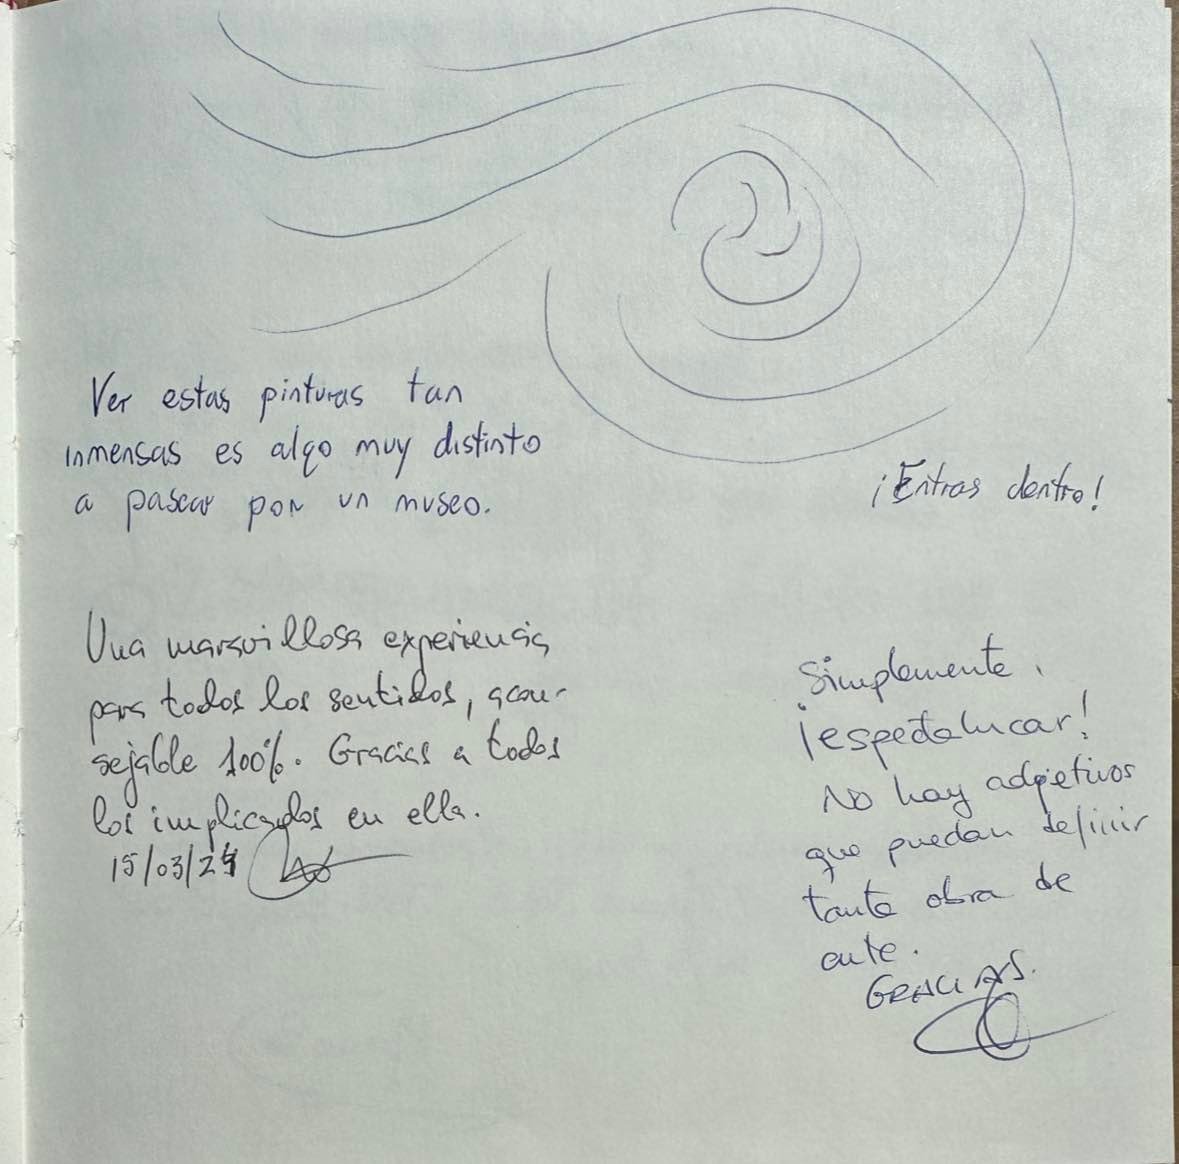 Ver estas pinturas tan
inmensas es algo muy distinto
a pasear por un museo.
¡Entras dentro!
Una maravillosa experiencia
para todos los sentidos, acon-
sejable 100%. Gracias a todos
los implicados en ella.
15/03/24
Simplemente,
¡espectalucar!
No hay adjetivos
que puedan definir
tanta obra de
arte.
GRACIAS.